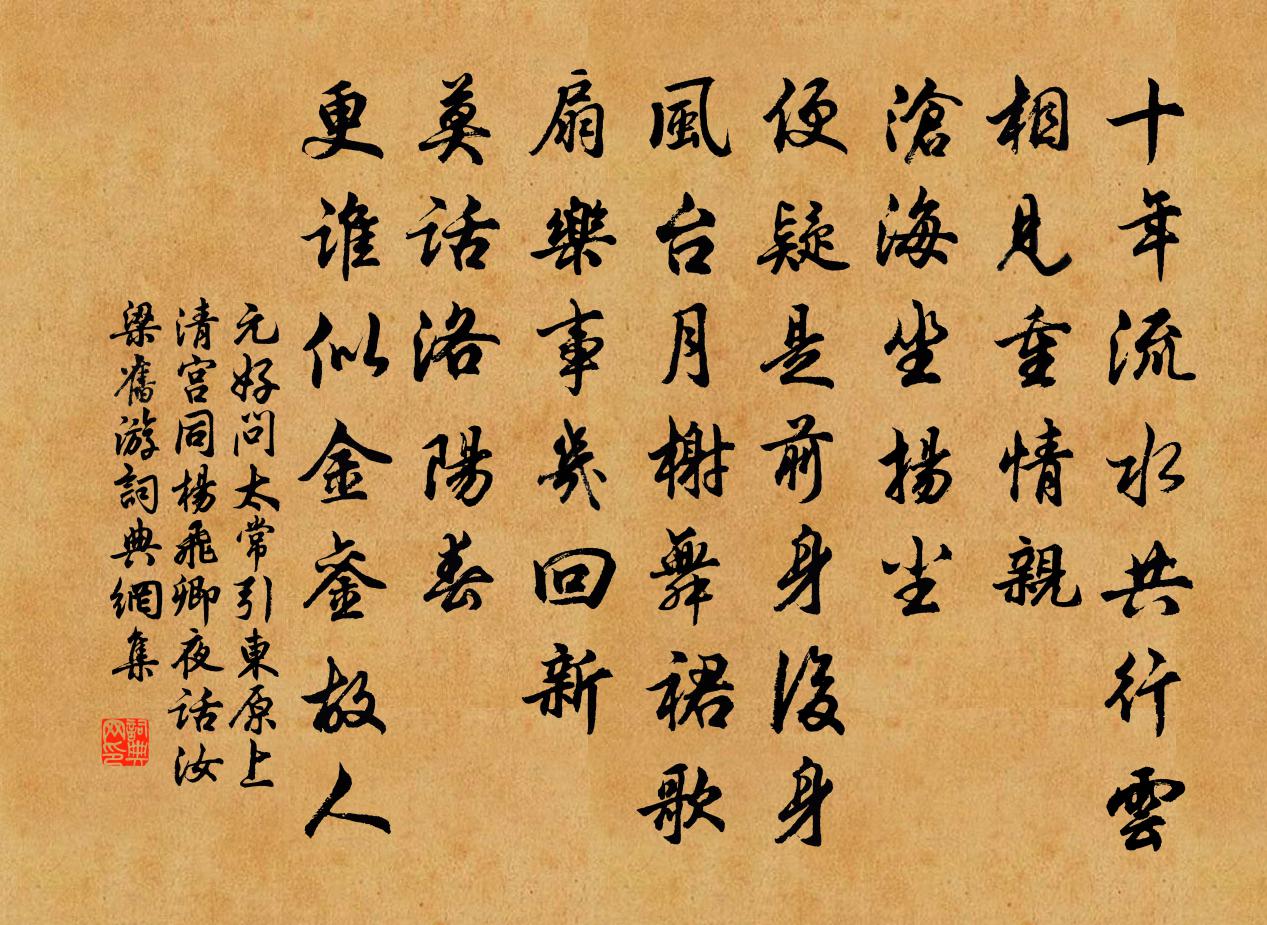 十年流水共行雲
相見重情親
滄海坐揚尘
便疑是前身後身
風台月榭舞裙歌
扇樂事幾回新
莫話洛陽春
更誰似金鑾故人
元好問太常引東原上
清宮同楊飛卿夜話汝
梁舊游詞典網集
詞典
网印